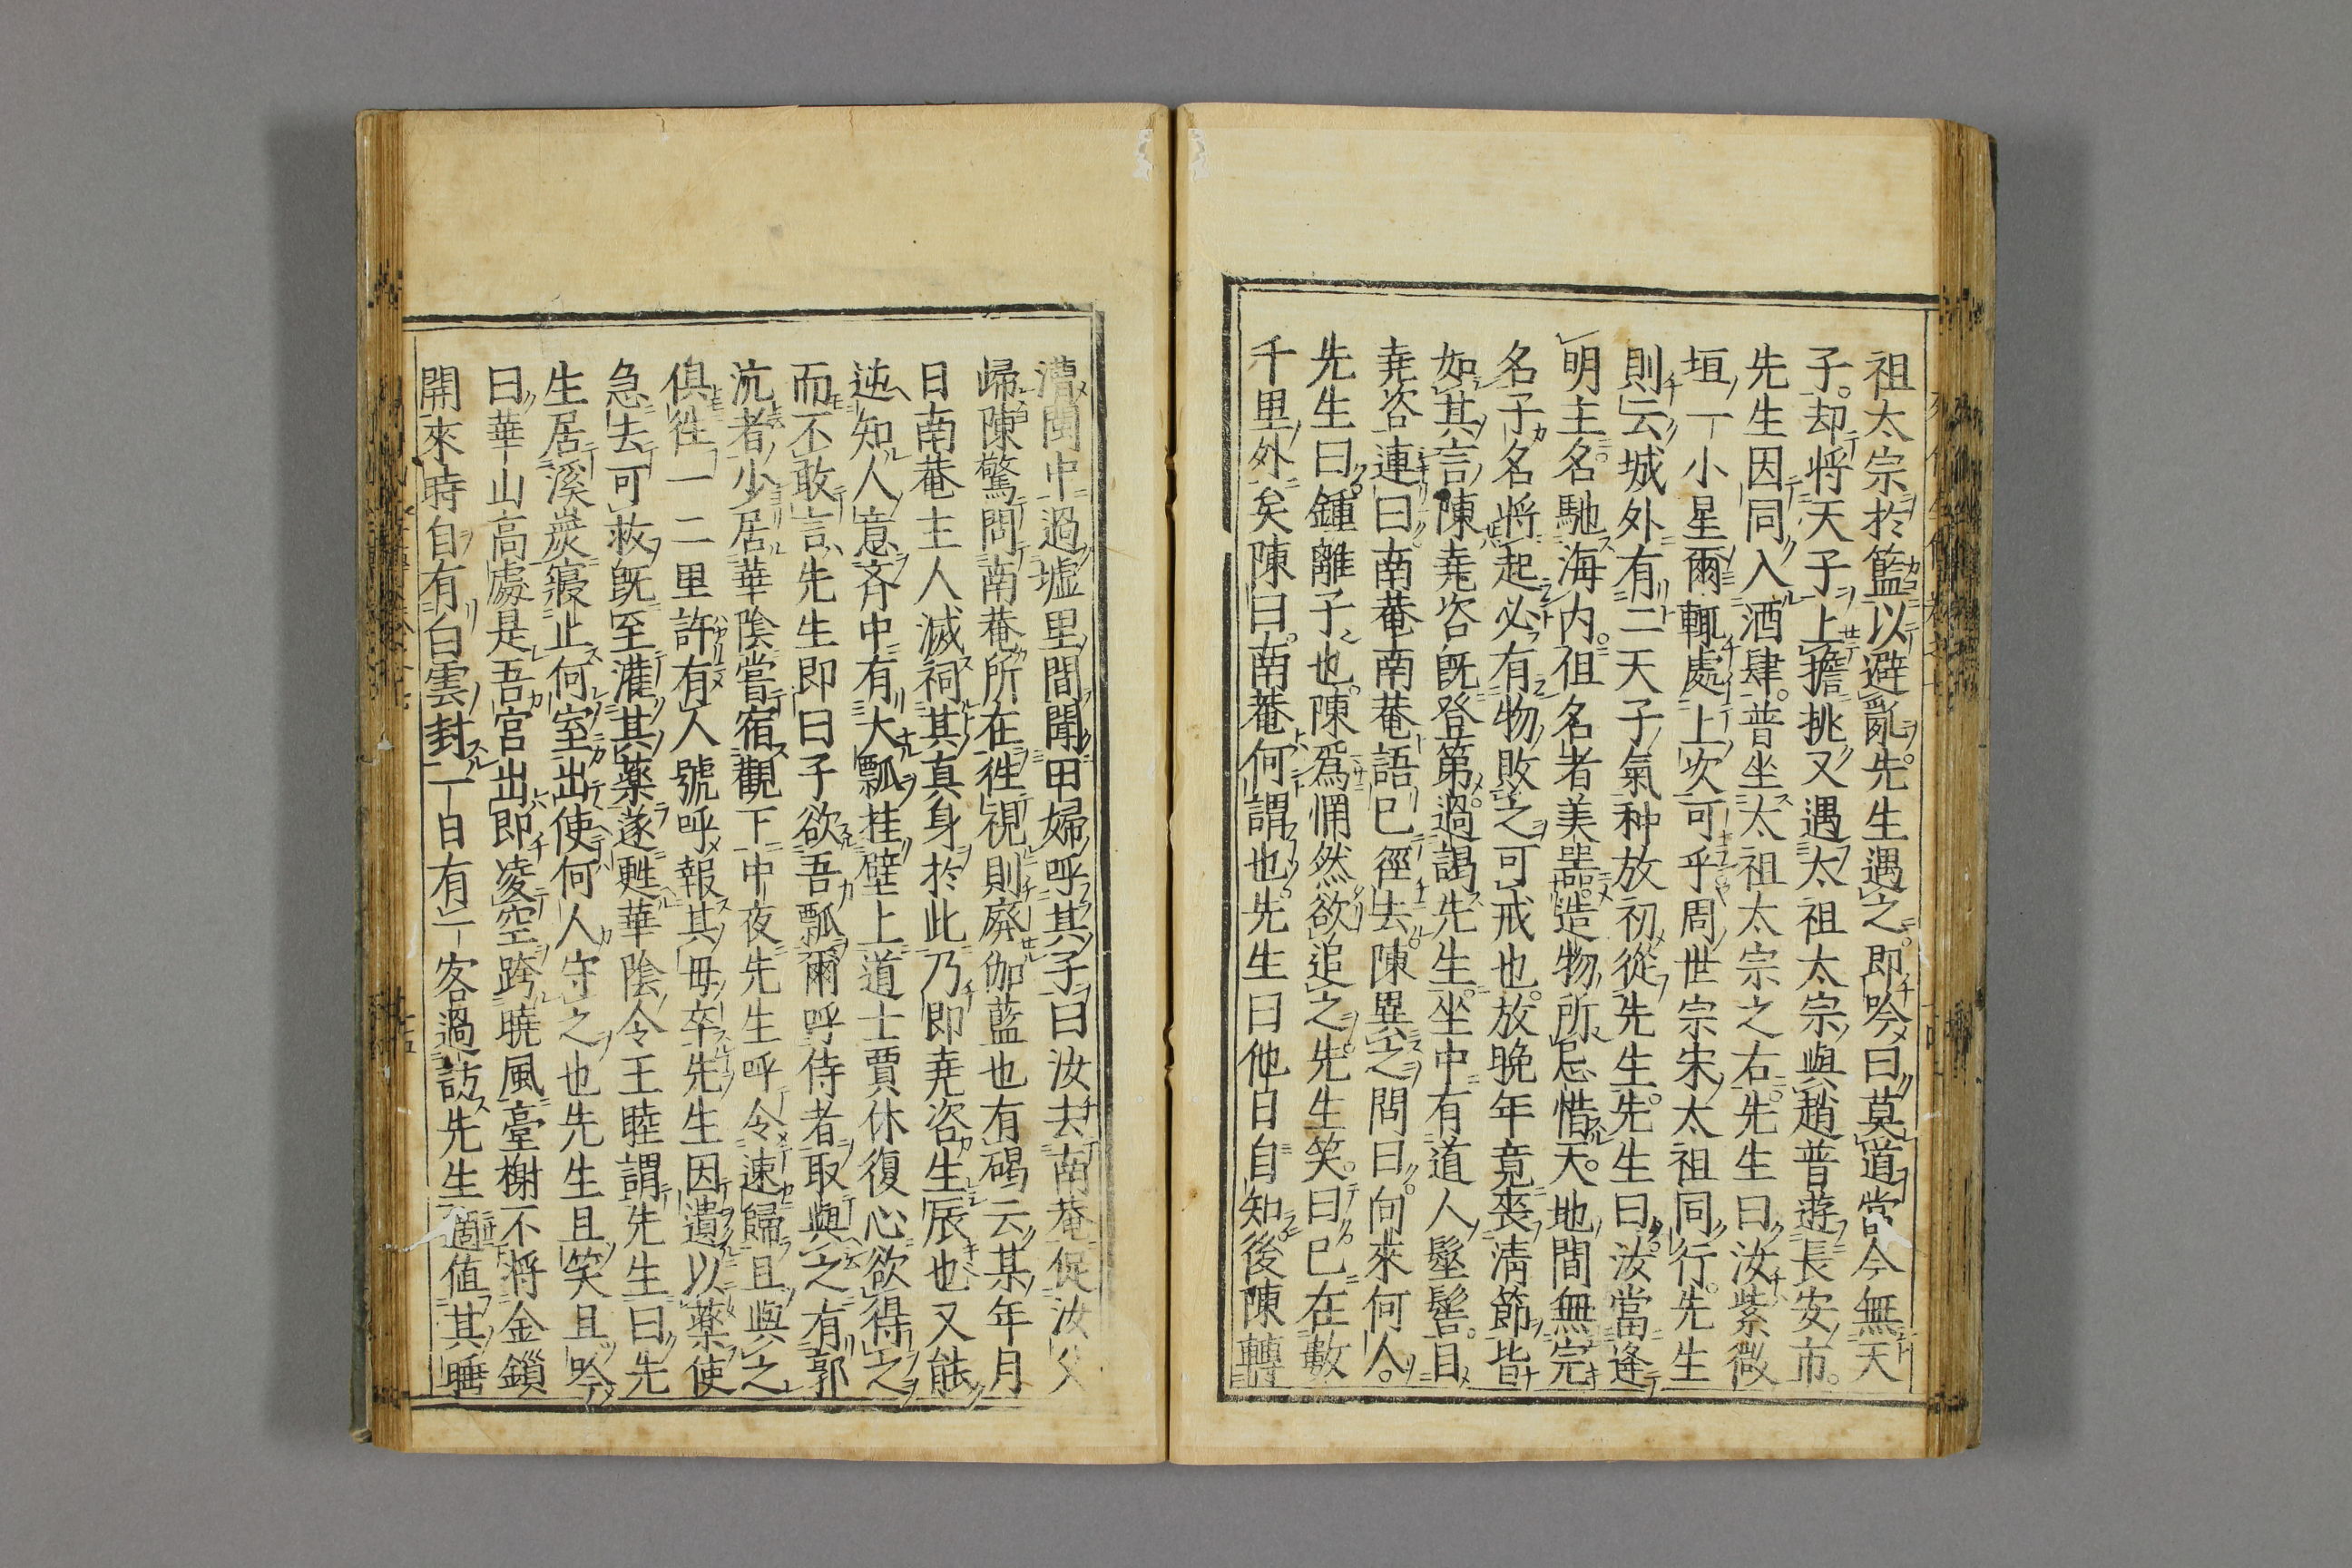 祖太宗於籃以避亂先生遇之即吟曰莫道當今無天
子。却將天子上擔挑又遇太祖太宗與趙普遊長安市。
先生因同入酒肆。普坐太祖太宗之右。先生曰汝紫微
垣一小星爾輒處上次可乎周世宗宋太祖同行。先生
則云城外有二天子氣种放初從先生。先生曰。汝當逢
明主名。馳海内。但名者美噐。造物所忌惜天。地間無完
名子名將起必有物敗之可戒也。放晚年竟喪清節皆
如其言陳堯咨既登第。過謁先生。坐中有道人鬉髻。目
堯咨連曰南菴南菴語巳徑去。陳異之問曰。向來何人。
先生曰。鍾離子也。陳爲惘然欲追之。先生笑。曰巳在數
千里外矣陳曰。南菴何謂也。先生曰他日自知後陳轉
漕閩中過墟里間聞田婦呼其子曰汝去南菴促汝父
歸陳驚問南菴所在徃視則廢伽藍也有碣云某年月
日南菴主人滅祠其真身於此乃即堯咨生辰也又能
逆知人意齊中有大瓢挂壁上道士賈休復心欲得之
而不敢言先生即曰子欲吾瓢爾呼侍者取與之有郭
沆者少居華陰嘗宿觀下中夜先生呼令速歸且與之
俱徃一二里許有人號呼報其毋卒先生因遺以藥使
急去可救既至灌其藥遂甦華陰令王睦謂先生曰先
生居溪嵗寢止何室出使何人守之也先生且笑且吟
曰華山高處是吾宮出即凌空跨曉風臺榭不將金鎖
開來時自有白雲封一日有一客過訪先生適值其睡